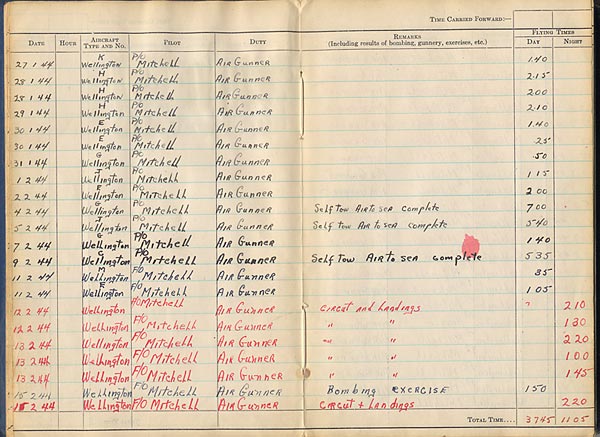 TIME CARRIED FORWARD:—
DATE HOUR AIRCRAFT TYPE AND NO. PILOT DUTY REMARKS (Including results of bombing, gunnery, exercises, etc.) FLYING TIMES DAY NIGHT
27 1 44 K Wellington P/O Mitchell AIR GUNNER 1.40
28 1 44 H Wellington P/O Mitchell AIR GUNNER 2.15
28 1 44 H Wellington P/O Mitchell AIR GUNNER 2.00
29 1 44 H Wellington P/O Mitchell AIR GUNNER 2.10
30 1 44 E Wellington P/O Mitchell AIR GUNNER 1.40
30 1 44 E Wellington P/O Mitchell AIR GUNNER 25
31 1 44 G Wellington P/O Mitchell AIR GUNNER .50
1 2 44 J Wellington P/O Mitchell AIR GUNNER 1 15
2 2 44 Wellington P/O Mitchell AIR GUNNER 2 00
4 2 44 G Wellington P/O Mitchell AIR GUNNER Self Tow AIR to SEA complete 7.00
5 2 44 J Wellington P/O Mitchell AIR GUNNER Self Tow AIR to SEA complete 5.40
7 2 44 G Wellington P/O Mitchell AIR GUNNER 1.40
9 2 44 Wellington P/O Mitchell AIR GUNNER Self Tow AIR to SEA complete 5 35
11 2 44 M Wellington F/O Mitchell AIR GUNNER 35
11 2 44 E Wellington F/O Mitchell AIR GUNNER 1 05
12 2 44 Wellington F/O Mitchell AIR GUNNER CIRCUT and Landings 2 10
12 2 44 Wellington F/O Mitchell AIR GUNNER " " 1 30
13 2 44 Wellington F/O Mitchell AIR GUNNER " " 2 20
13 2 44 Wellington F/O Mitchell AIR GUNNER " " 1 00
13 2 44 Wellington F/O Mitchell AIR GUNNER " " 1 45
15 2 44 Wellington F/O Mitchell AIR GUNNER Bombing EXERCISE 1 50
15 2 44 Wellington F/O Mitchell AIR GUNNER CIRCUT + Landings 2 20
TOTAL TIME.... 37 45 11 05